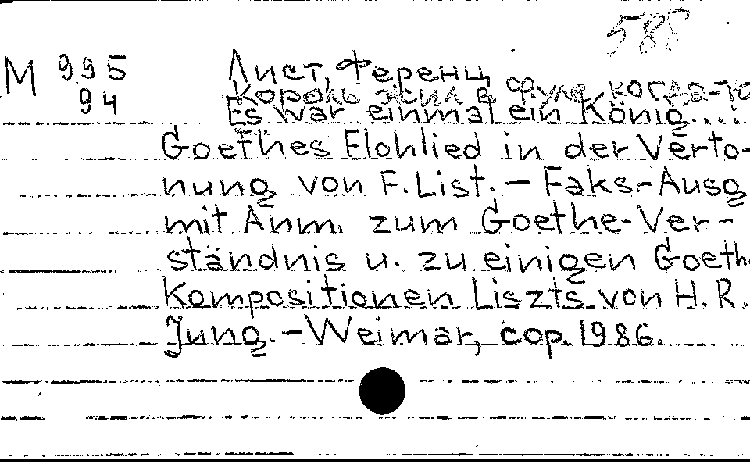 588
M 995
94
Лист, Ференц
Король жил в Фуле когда-то
Es war einmal ein König...:
Goethes Flohlied in der Verto-
nung von F. List. – Faks-Ausg
mit Anm. zum Goethe-Ver-
ständnis u. zu einigen Goethe
Kompositionen Liszts von H. R.
Jung. – Weimar, cop. 1986.